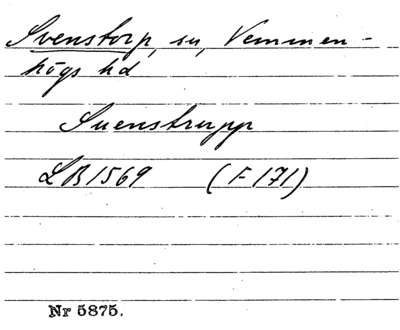 Svenstorp, sn, Vemmen-
högs hd
Suenstrupp
LB 1569 (F 171)
Nr 5875.